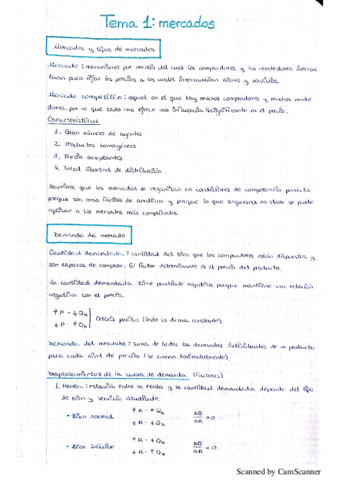 Tema 1: mercados
Mercados y tipos de mercados
Mercado: mecanismo por medio del cual los compradores y los vendedores interac
tuan para fijar los precios a los cuales intercambian bienes y servicios.
Mercado competitivo: aquel en el que hay muchos compradores y muchos vende
dores, por lo que cada uno ejerce una influencia insignificante en el precio.
Características
1. Gran número de agentes
2. Productos homogéneos
3. Precio aceptantes
4. Total libertad de distribución.
Asumimos que los mercados se organizan en condiciones de competencia perfecta
porque son más fáciles de analizar y porque lo que en clase se puede
aplicar a los mercados más complicados.
Demanda de mercado
Cantidad demandada: cantidad del bien que los compradores están dispuestos y
son capaces de comprar. El factor determinante es el precio del producto.
La cantidad demandada tiene pendiente negativa porque mantiene una relación
negativa con el precio.
↑P - ↓QD
↓P - ↑QD Ceteris paribus (todo lo demás constante).
Demanda del mercado: suma de todas las demandas individuales de un producto
para cada nivel de precios (se suman horizontalmente).
Desplazamientos de la curva de demanda (factores)
1. Renta: relación entre la renta y la cantidad demandada depende del tipo
de bien y servicio estudiado.
• Bien normal ↑R - ↑QD ΔQ/ΔR > 0
↓R - ↓QD
• Bien inferior ↑R - ↓QD ΔQ/ΔR < 0
↓R - ↑QD
Scanned by CamScanner